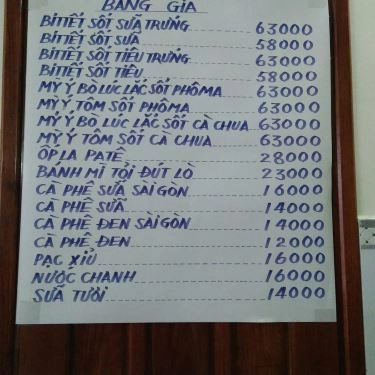 BẢNG GIA
BÍTTẾT SỐT SỮA TRỨNG 63000
BÍTTẾT SỐT SỮA 58000
BÍTTẾT SỐT TIÊU TRỨNG 63000
BÍTTẾT SỐT TIÊU 58000
MỲ Ý BÒ LÚC LẮC SỐT PHÔMA 63000
MỲ Ý TÔM SỐT PHÔMA 63000
MỲ Ý BÒ LÚC LẮC SỐT CÀ CHUA 63000
MỲ Ý TÔM SỐT CÀ CHUA 63000
ỐP LA PATÊ 28000
BÁNH MÌ TỎI ĐÚT LÒ 23000
CÀ PHÊ SỮA SÀI GÒN 16000
CÀ PHÊ SỮA 14000
CÀ PHÊ ĐEN SÀI GÒN 14000
CÀ PHÊ ĐEN 12000
PẠC XỈU 16000
NƯỚC CHANH 16000
SỮA TƯƠI 14000